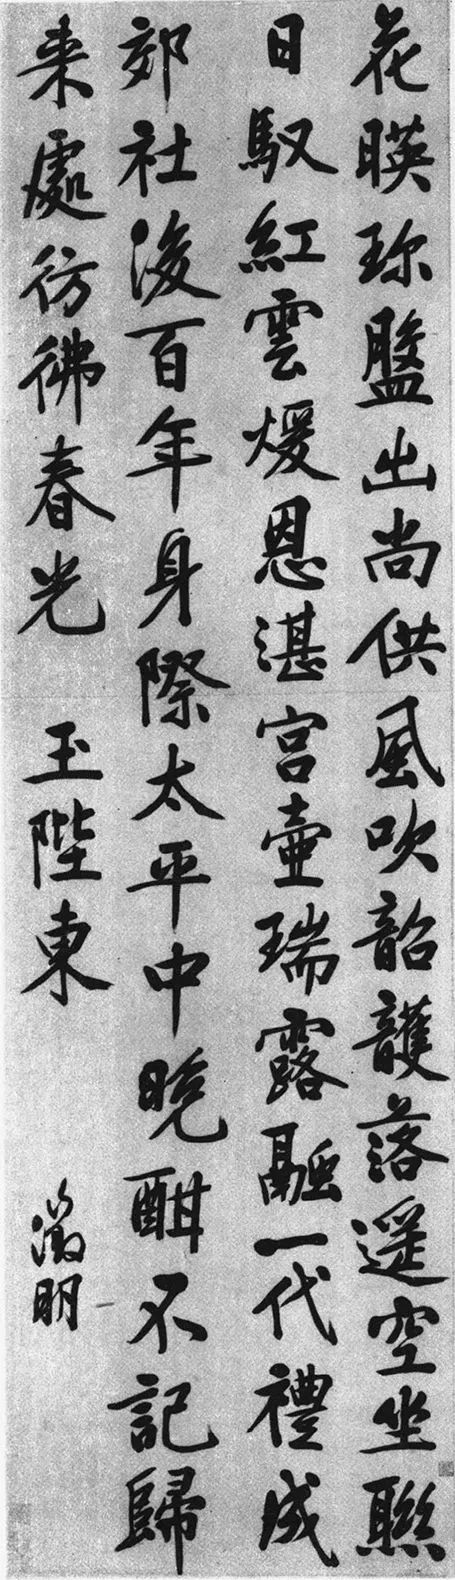 花暎珎盤出尚供風吹韶頀落遥空坐聯
日馭紅雲煖恩湛宮壺瑞露融一代禮成
郊社後百年身際太平中晚酣不記歸
来處彷彿春光玉陛東
徵明